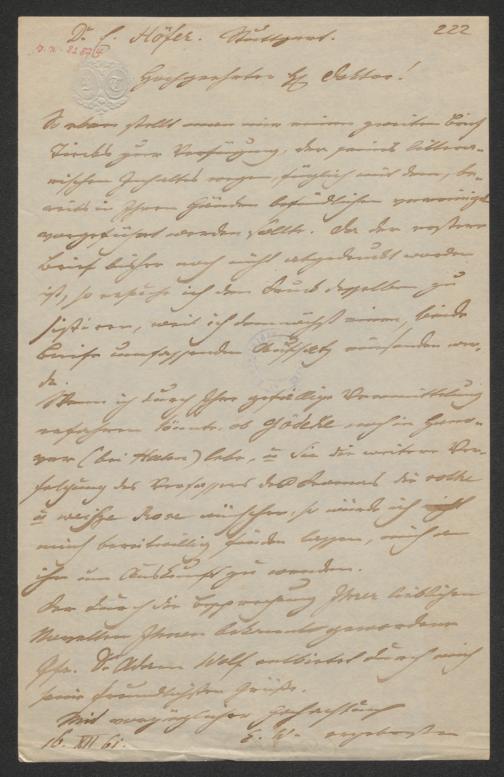 Dr. E. Höfer. Stuttgart.
222
Hochgeehrter H Doktor!
So eben stellt man mir einen zweiten Brief
Tiecks zur Verfügung, der seines littera-
rischen Inhaltes wegen, füglich mit dem, be-
reits in Ihren Händen befindlichen vereinigt
vorgeführt werden sollte. Da der erstere
Brief bisher noch nicht abgedruckt worden
ist, so ersuche ich den Druck desselben zu
sistiren, weil ich demnächst einen, beide
Briefe umfassenden Aufsatz einsenden wer-
de.
Wenn ich durch Ihre gefällige Vermittelung
erfahren könnte, ob Gödeke noch in Hano-
ver (bei Hahn) lebe, u Sie die weitere Ver-
folgung des Verfassers des Dramas die rothe
u weiße Rose wünschen, so würde ich
mich bereitwillig finden lassen, mich an
ihn um Auskunft zu wenden.
Der durch die Besprechung Ihrer lieblichen
Novellen Ihnen bekannt gewordene
Dr. Adam Wolf entbietet durch mich
seine freundlichsten Grüße.
Mit vorzüglicher Hochachtung
16. XII 61.
E. W. ergebenster